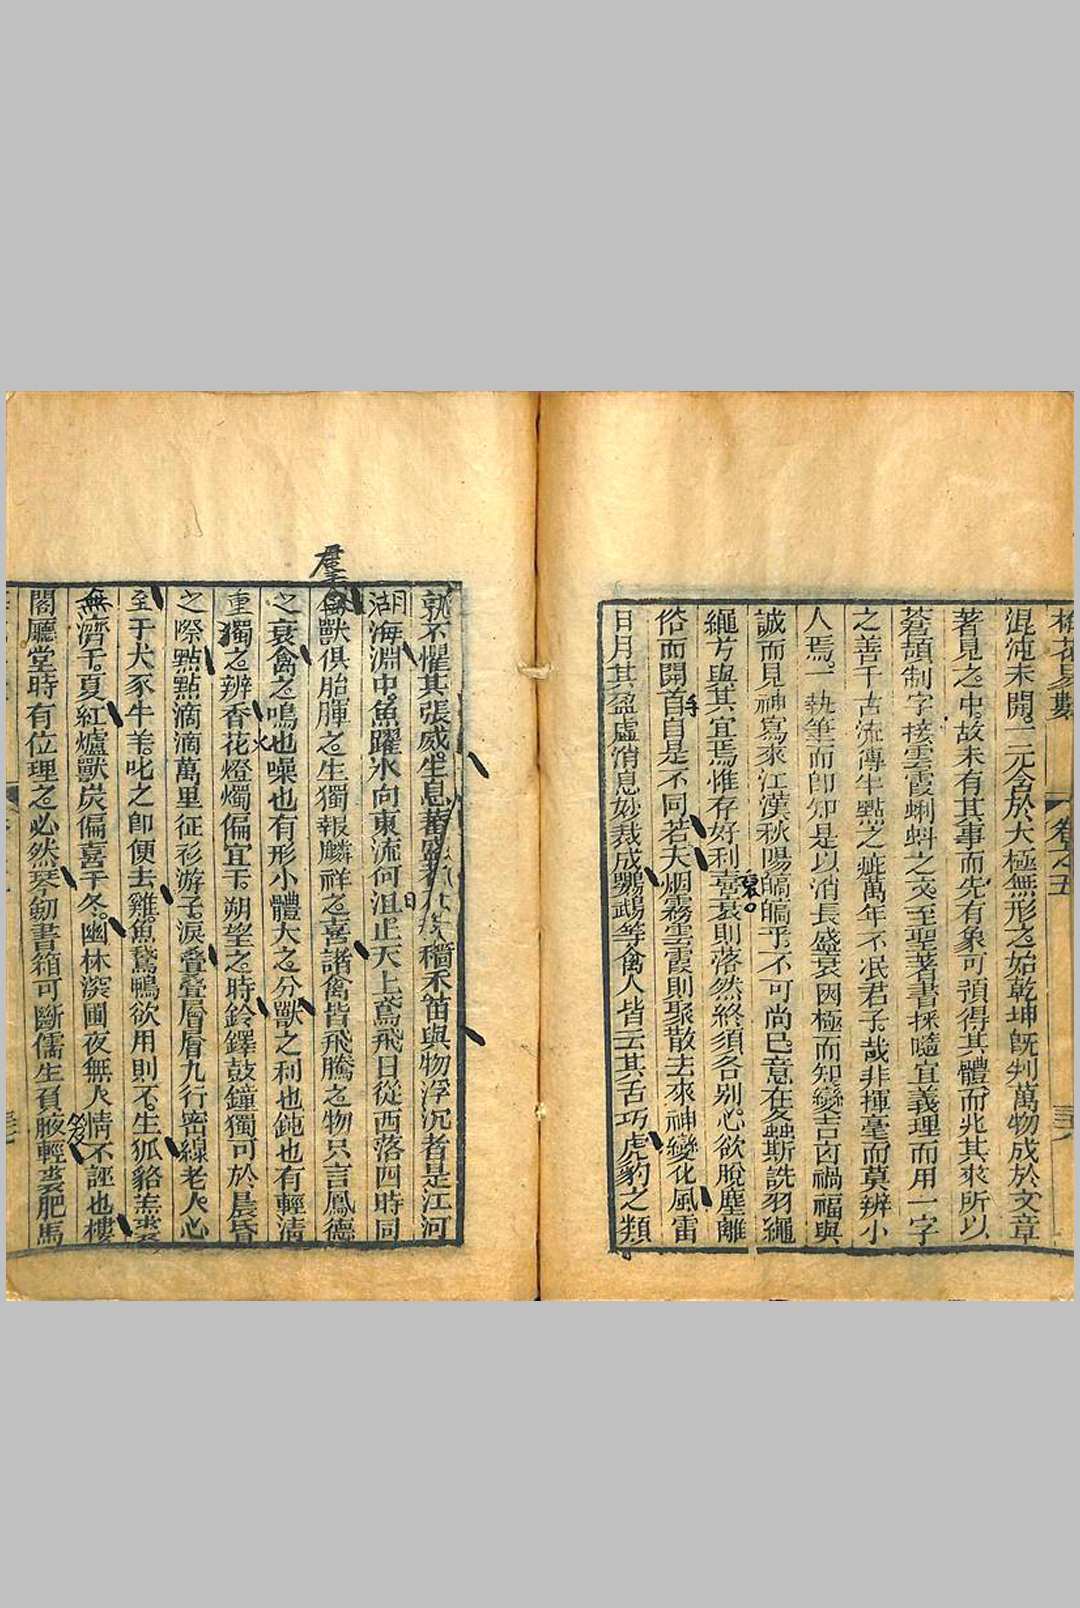 卷之五
混沌未開。一元含於太極無形之始乾坤既判萬物成於文章
著見之中。故未有其事而先有象可預得其體。而兆其來所以
蒼頡制字接雲霞蝌蚪之文至聖著書採隨宜義理而用一字
之善千古流傳半點之疵萬年不泯君子。哉非揮毫而莫辨小
人焉。一執筆而即知是以消長盛衰因極而知變吉凶禍福與
誠而見神寫來江漢秋陽皜皜乎。不可尚已。意在螽斯詵羽繩
繩方與其宜焉惟存好利喜哀則落然終須各別。心欲脫塵離
俗而開首自是不同。若夫烟霧雲霞則聚散去來神變化風雷
日月其盈虛消息妙裁成鸚鵡等禽人皆云其舌巧虎豹之類
孰不懼其張威。生息蓄 稻禾笛與物浮沉者是江河
湖海淵中。魚躍水向東流何沮止天上鳶飛日從西落四時同
獸俱胎腪之。生獨報麟祥之喜諸禽皆飛騰之物只言鳳德
之衰禽之鳴也噪也有形小體大之分獸之利也鈍也有輕清
重獨之辨香花燈燭偏宜于。朔望之時鈴鐸鼓鐘獨可於晨昏
之際點點滴滴萬里征衫游子。淚叠叠層層九行密線老人心
至于犬豕牛羊。叱之即便去雞。魚鵞鴨欲用則不。生狐貉羔裘
無濟于。夏紅爐獸炭偏喜于冬。幽林深圃夜無人情不誣也樓
閣廳堂時有位理之必然琴劒書箱可斷儒生負腋輕裘肥馬